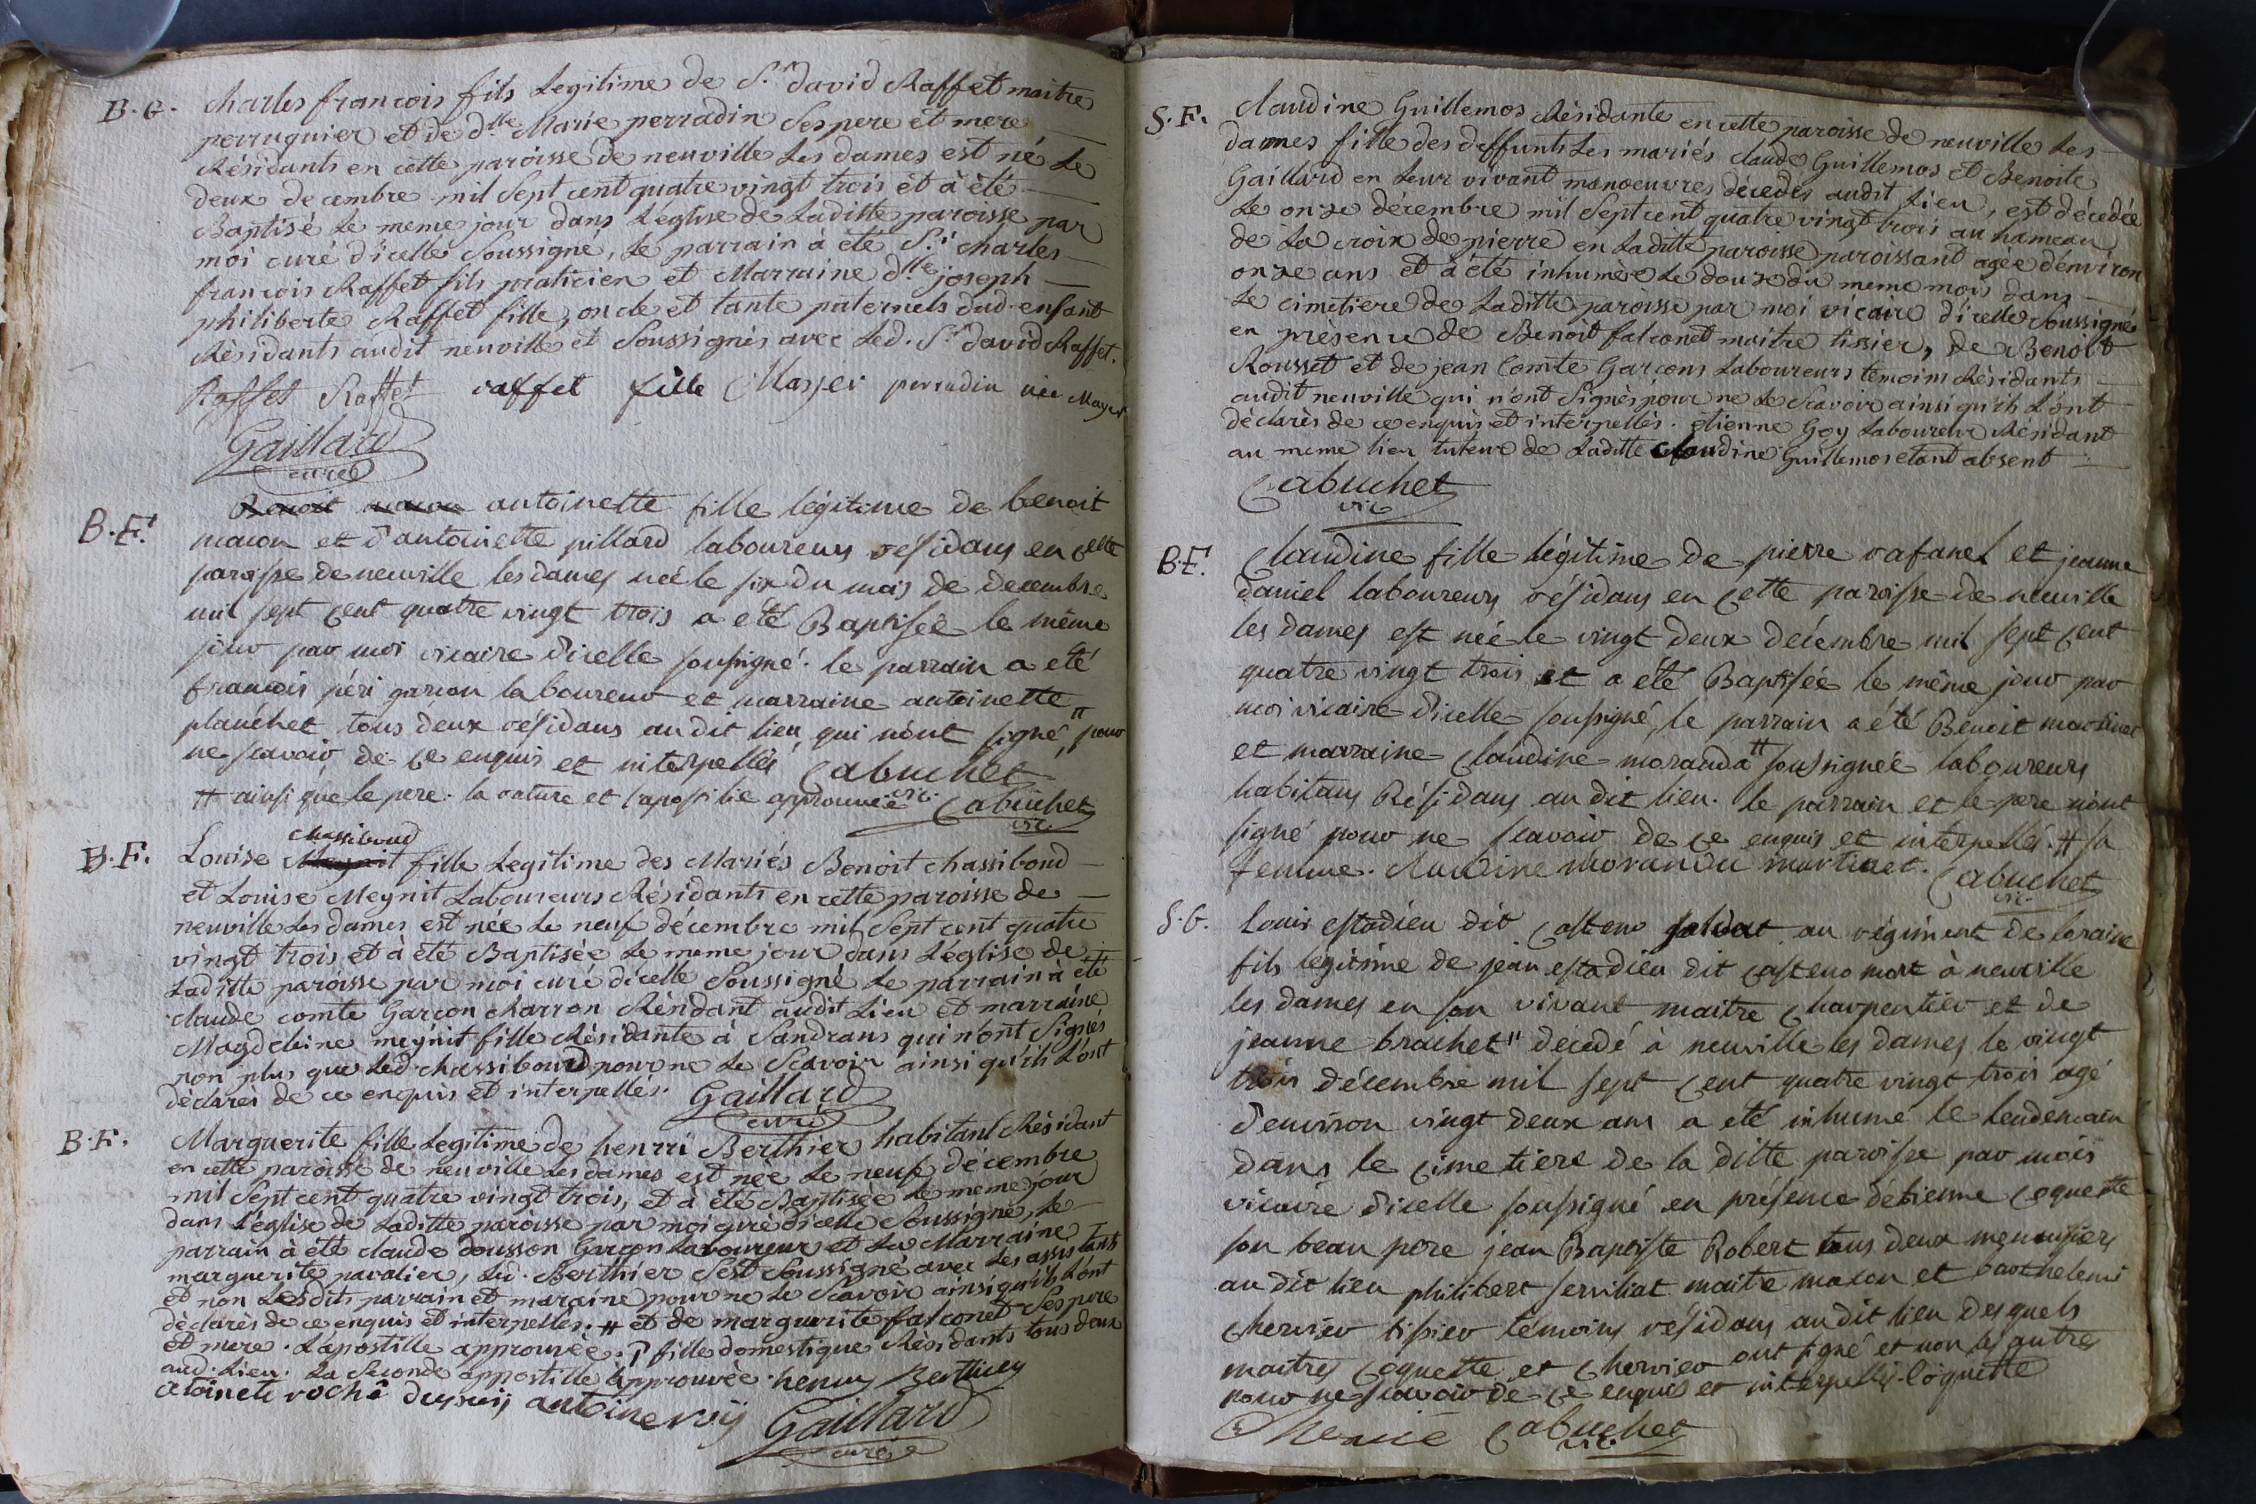 B.G. charles françois fils Legitime de S.r david Raffet maitre
perruquier et de d.lle Marie perradin Ses pere et mere
Résidants en cette paroisse de neuville Les dames est né Le
deux decembre mil Sept cent quatre vingt trois et à été
Baptisé Le meme jour dans L'église de Laditte paroisse par
moi curé d'icelle Soussigné, Le parrain à été S.r charles
françois Raffet fils praticien et Marraine d.lle joseph
philiberte Raffet fille, oncle et tante paternels dud. enfant
Résidants audit neuville et Soussignés avec Led. S.r david Raffet.
Raffet Raffet raffet fille Mayer perradin née Mayer
Gaillard
curé
B.F. Benoit macon antoinette fille légitime de benoit
macon et d'antoinette pillard laboureurs résidans en cette
paroisse de neuville les dames née le six du mois de decembre
mil sept cent quatre vingt trois a été Baptisée le même
jour par moi vicaire d'icelle soussigné. le parrain a été
francois péri garcon laboureur et marraine antoinette
planchet tous deux résidans au dit lieu qui n'ont signé # pour
ne scavoir de ce enquis et interpellés Cabuchet
vic.
# ainsi que le pere. la rature et l'apostille approuvée Cabuchet
vic.
chassiboud
B.F. Louise Meynit fille Legitime des Mariés Benoit chassiboud
et Louise Meynit Laboureurs Résidants en cette paroisse de
neuville Les dames est née Le neuf décembre mil Sept cent quatre
vingt trois et à été Baptisée Le meme jour dans L'église de
Laditte paroisse par moi curé d'icelle Soussigné Le parrain à été
claude comte Garçon charron Résidant audit Lieu et marraine
Magdeleine meynit fille Résidante à Sandrans qui n'ont Signés
non plus que Led. chassiboud pour ne Le Scavoir ainsi qu'ils L'ont
déclarés de ce enquis et interpellés. Gaillard
curé
B.F. Marguerite fille Legitime de henrri Berthier habitant Résidant
en cette paroisse de neuville Les dames est née Le neuf décembre
mil Sept cent quatre vingt trois, et à été Baptisée Le meme jour
dans L'église de Laditte paroisse par moi curé d'icelle Soussigné, Le
parrain à été claude dousson Garçon Laboureur et La Marraine
marguerite pavalier, Led. Berthier S'est Soussigné avec Les assistants
et non Lesdits parrain et maraine pour ne Le Scavoir ainsi qu'ils L'ont
déclarés de ce enquis et interpellés. # et de marguerite falconet Ses pere
et mere. L'apostille approuvée. fille domestique Résidants tous deux
aud. Lieu. La Seconde appostille approuvée. henry Berthier
atoinete roché dupuij antoine roij Gaillard
curé
S.F. Claudine Guillemos Résidante en cette paroisse de neuville Les
dames fille des deffunts Les mariés claude Guillemos et Benoite
Gaillard en Leur vivant manoeuvres décedés audit Lieu, est décedée
Le onze décembre mil Sept cent quatre vingt trois au hameau
de La croix de pierre en Laditte paroisse paroissant agée d'environ
onze ans et à été inhumée Le douze du meme mois dans
Le cimetiere de Laditte paroisse par moi vicaire d'icelle Soussigné
en présence de Benoit falconet maitre tissier, de Benoit
Rousset et de jean Comte Garçons Laboureurs temoins Résidants
audit neuville qui n'ont Signés pour ne Le Scavoir ainsi qu'ils L'ont
déclarés de ce enquis et interpellés. étienne Goy Laboureur Résidant
au meme lieu tuteur de Laditte Claudine Guillemos etant absent
Cabuchet
vic
B.F. Claudine fille légitime de pierre rafanel et jeanne
daniel laboureurs résidans en cette paroisse de neuville
les dames est née le vingt deux décembre mil sept cent
quatre vingt trois et a été Baptisée le même jour par
moi vicaire d'icelle soussigné, le parrain a été Benoit martinet
et marraine Claudine moranda # soussignée laboureurs
habitans Résidans au dit lieu. le parrain et le pere n'ont
signé pour ne scavoir de ce enquis et interpellés. # sa
femme. Claudine moranda martinet. Cabuchet
vic.
S.G. Louis estadieu dit Casteno soldat au régiment de loraine
fils légitime de jean estadieu dit casteno mort à neuville
les dames en son vivant maitre charpentier et de
jeanne brachet décédé à neuville les dames le vingt
trois décembre mil sept cent quatre vingt trois agé
d'environ vingt deux ans a été inhumé le lendemain
dans le cimetiere de la ditte paroisse par mois
vicaire d'icelle soussigné en présence d'étienne coquette
son beau pere jean Baptiste Robert tous deux menuisiers
au dit lieu philibert serviliat maitre macon et barthelemi
chervier tissier témoins résidans au dit lieu desquels
maitres Coquette et chervier ont signé et non les autres
pour ne scavoir de ce enquis et interpellés. Coquette
Cabuchet
vic.